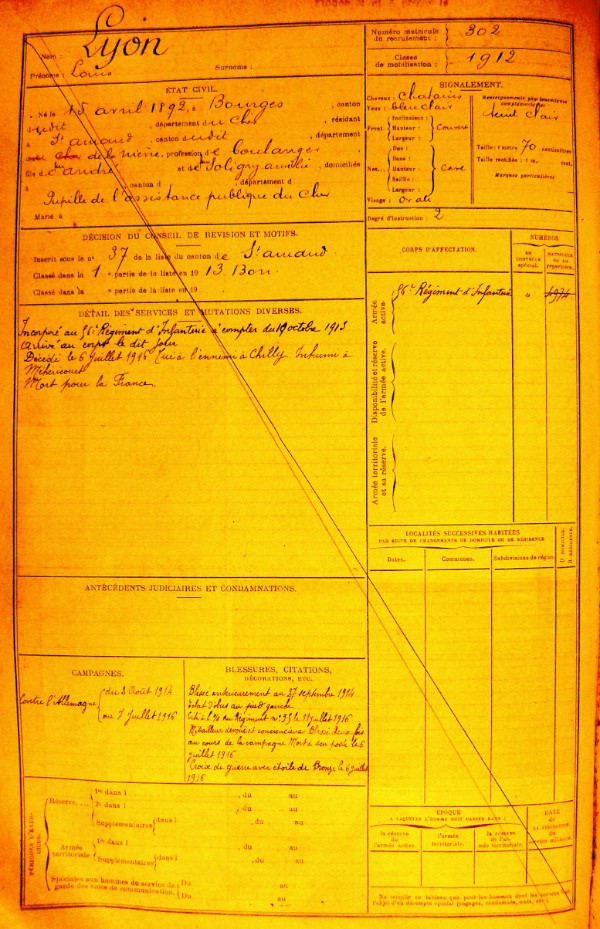 Nom : Lyon
Prénoms : Louis Surnoms :
Numéro matricule du recrutement : 302
Classe de mobilisation : 1912
ÉTAT CIVIL.
Né le 15 avril 1892, à Bourges, canton
dudit, département du Cher, résidant
à St amand, canton dudit, département
de boulanger
fils d'andré et de Foligny amélie, domiciliés
à , canton d , département d
Pupille de l'assistance publique du Cher
Marié à
SIGNALEMENT.
Cheveux : chatains
Yeux : bleu clair
Front. Inclinaison :
Hauteur : Couvert
Largeur :
Nez. Dos :
Base :
Hauteur : Cave
Saillie :
Largeur :
Visage : Ovale
Renseignements physionomiques complémentaires :
Teint clair
Taille : 1 mètre 70 centimètres
Taille rectifiée : 1 m. cent.
Marques particulières
Degré d'instruction : 2
DÉCISION DU CONSEIL DE REVISION ET MOTIFS.
Inscrit sous le n° 37 de la liste du canton de St amand
Classé dans la 1 partie de la liste en 1913. Bon
Classé dans la partie de la liste en 19
DÉTAIL DES SERVICES ET MUTATIONS DIVERSES.
Incorporé au 95e Régiment d'Infanterie à compter du 9 octobre 1913
Arrivé au corps le dit jour
Décédé le 6 Juillet 1916 Tué à l'ennemi à Chilly Inhumé à
Méhéricourt
Mort pour la France
CORPS D'AFFECTATION.
NUMÉROS
AU CONTRÔLE spécial.
MATRICULE OU AU répertoire.
Armée active.
95e Régiment d'Infanterie " 4974
Disponibilité et réserve de l'armée active.
Armée territoriale et sa réserve.
LOCALITÉS SUCCESSIVES HABITÉES
PAR SUITE DE CHANGEMENTS DE DOMICILE OU DE RÉSIDENCE
Dates. Communes. Subdivisions de région. D. DOMICILE. R. RÉSIDENCE.
ANTÉCÉDENTS JUDICIAIRES ET CONDAMNATIONS.
CAMPAGNES.
Contre l'Allemagne du 2 Août 1914
au 7 Juillet 1916
BLESSURES, CITATIONS,
DÉCORATIONS, ETC.
Blessé antérieurement au 27 septembre 1914
éclat d'obus au pied gauche
Cité à l'O/ du Régiment n° 95 le 11 Juillet 1916
Mitrailleur dévoué et consciencieux Blessé deux fois
au cours de la campagne Mort à son poste le 6
juillet 1916
Croix de guerre avec étoile de Bronze le 6 Juillet
1916
PÉRIODES D'EXERCICES.
Réserve.
1re dans l , du au
2e dans l , du au
Supplémentaires dans l , du au
, du au
Armée territoriale.
1re dans l , du au
Supplémentaires dans l , du au
, du au
Spéciales aux hommes du service de garde des voies de communication. Du au
Du au
ÉPOQUE
À LAQUELLE L'HOMME DOIT PASSER DANS :
la réserve de l'armée active.
l'armée territoriale.
la réserve de l'armée territoriale.
DATE de LA LIBÉRATION DU service militaire.